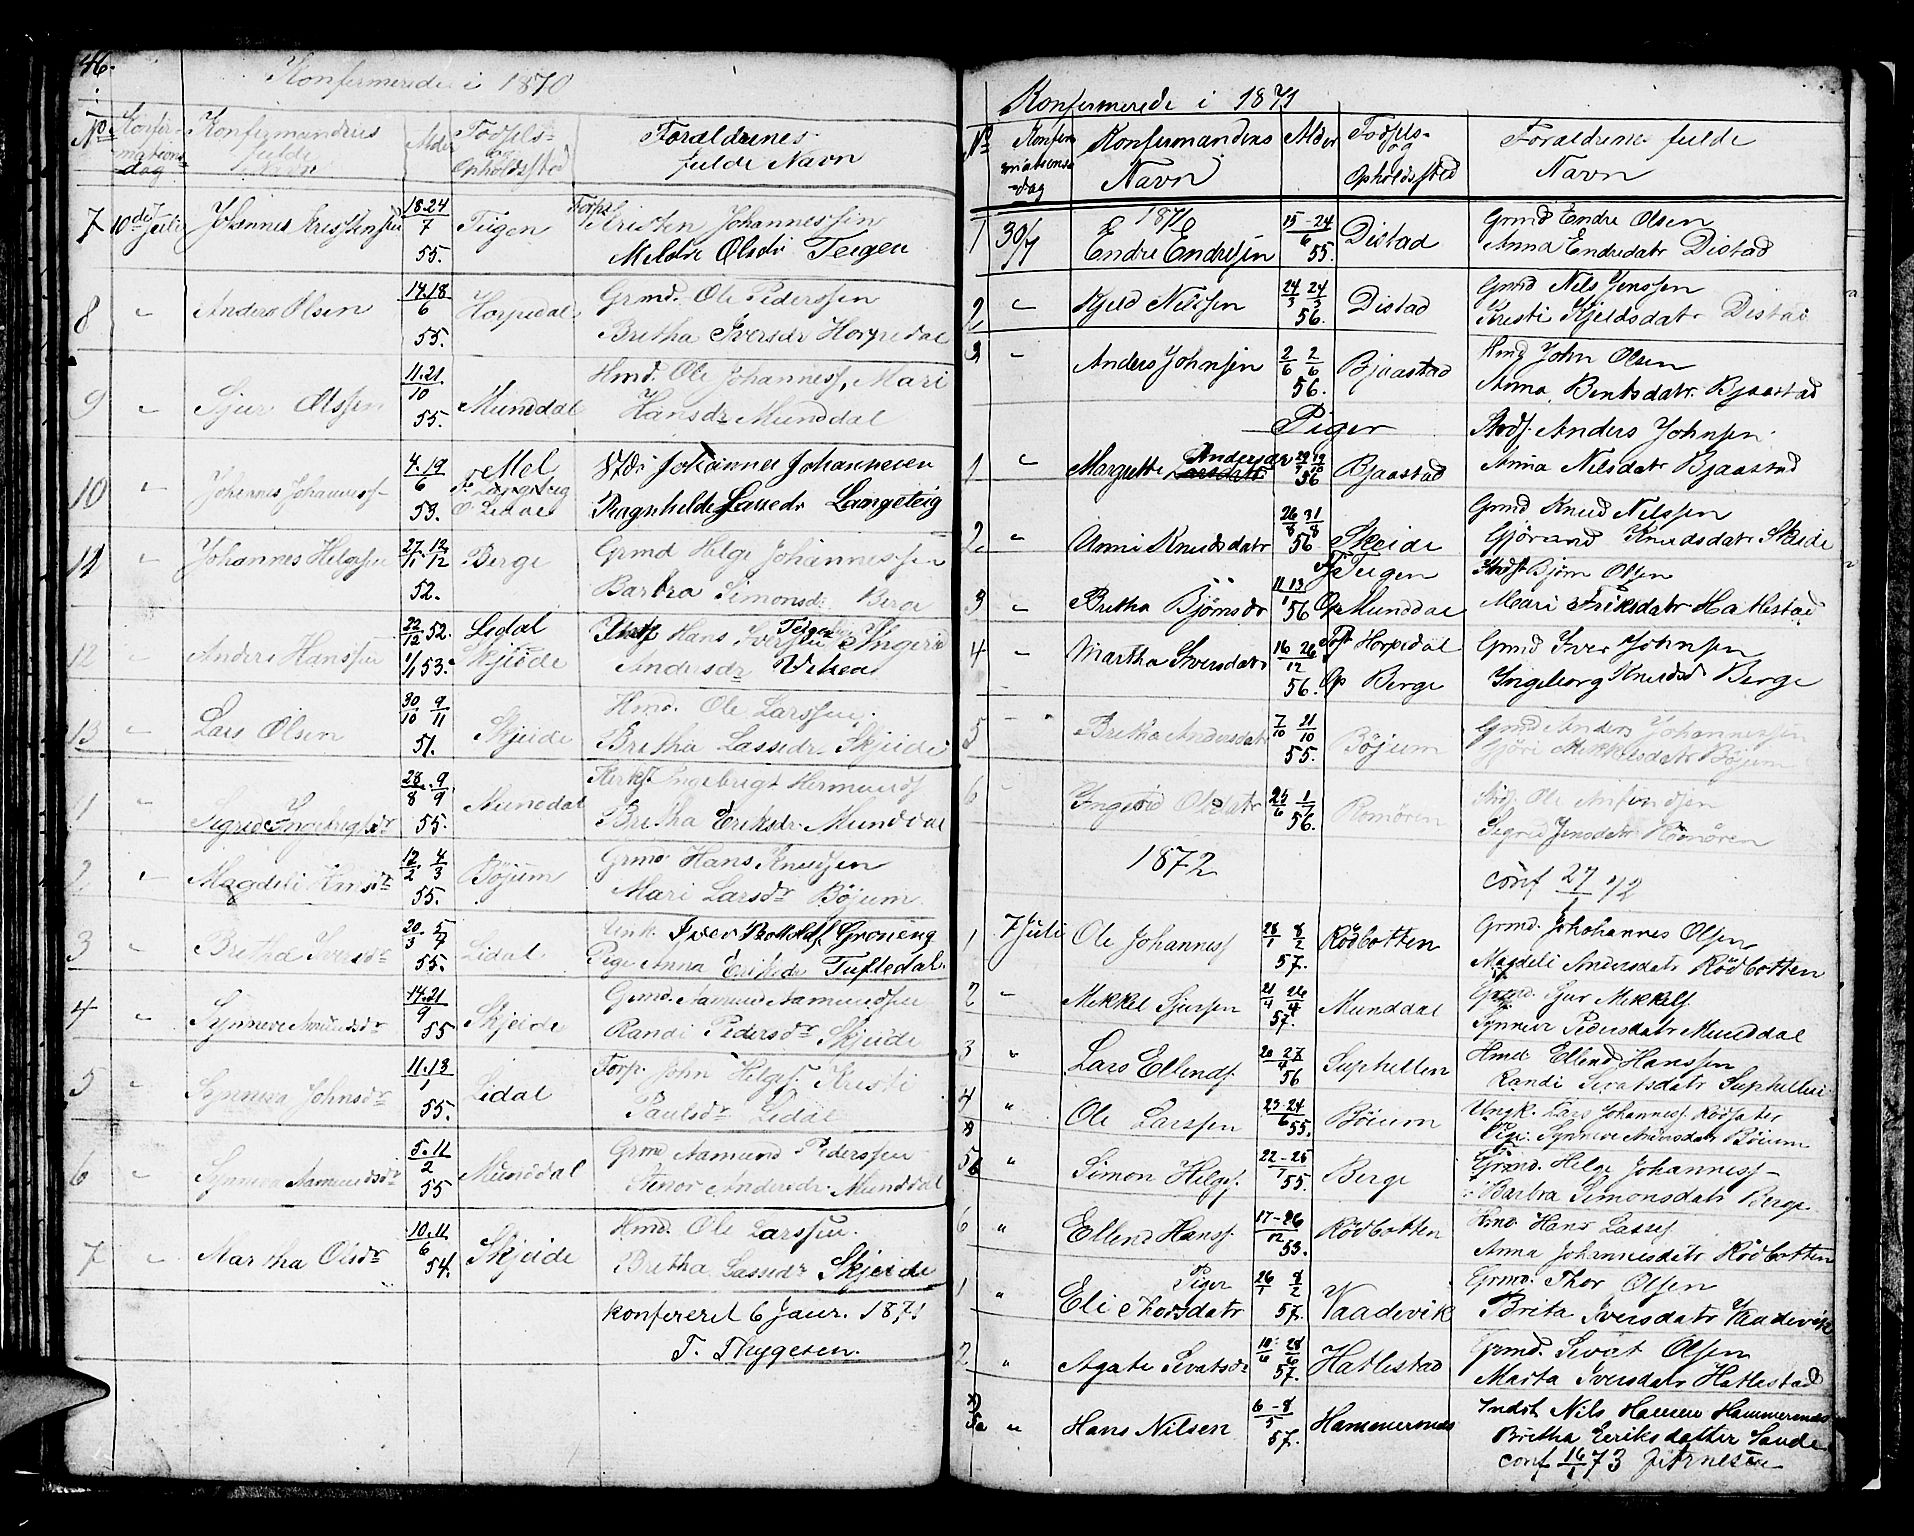 46.
Konfermerede i 1870
No Konfermationsdag Konfirmandens fulde Navn Alder Fødsels- og Opholdsstad Foraldrenes fulde Navn
7 10de Juli Johannes Kristensen 18.24/7 55. Teigen Forp. Kristen Johannessen
Meldri Olsdr Teigen
8 " Anders Olsen 17.18/6 55. Horpedal Grmd. Ole Pederssen
Bretha Iversdr Horpedal
9 " Sjur Olssen 11.21/10 55. Munddal Hmd. Ole Johannesf, Mari
Hansdr Munddal
10 " Johannes Johannesf 4.19/6 53. F. Mel Langeteig O. Lidal Johannes Johannesen
Ragnhilde Lassedr Langeteig
11 " Johannes Helgesen 27/11 12/12 52. Berge Grmd Helge Johannessen
Barbra Simonsdr Berge
12 " Anders Hanssen 22/12 52. 1/1 53. Lidal Skjeide Hans Iverssen Teigen Ingeri
Andersdr
13 " Lars Olsen 30/10 9/11 51. Skjeide Hmd. Ole Larssen,
Bretha Lassedr Skjeide
1 " Sigrid Ingebrigtsdr 28/8 9/9 55. Munddal Kirks. Ingebrigt Hermundsf
Bretha Eriksdr. Munddal
2 " Magdeli Hansdr 12/2 4/3 55. Böjum Grmd. Hans Knudsen
Mari Larsdr Böjum.
3 " Bretha Iversdr 20/3 5/7 55. Lidal Unk. Iver Botolfs. Gröneng
Pige Anna Eriksdr Tuftedal.
4 " Synneve Amundsdr 14.21/9 55 Skjeide Grmd. Aamund Aamundsen
Randi Pedersdr Skjeide
5 " Synneva Johnsdr 11.13/1 55. Lidal Forp. John Helgesf. Kristi
Paulsdr Lidal
6 " Synneva Aamundsdr 5.11/2 55 Munddal Grmd Aamund Pederssen
Andersdr. Munddal
7 " Martha Olsdr 10.11/6 54. Skjeide Hmd. Ole Larssen.
Bretha Lassedr Skjeide
konfereret 6 Janr. 1871
T. Thygesen.
Konfermerede i 1871
No Konfermationsdag Konfermandens Navn Alder Fodsels- og Opholdssted Foraldrenes fulde Navn
1871
1 30/7 Endre Endresen 15-24/6 55. Distad Grmd Endre Olsen
Anna Endredatr Distad
2 " Kjeld Nilssen 24/3 24/3 56. Distad Grmd Nils Jenssen
Kristi Kjeldsdatr Distad
3 " Anders Johnsen 2/6 2/6 56. Bjaastad Hmd John Olsen
Anna Bentsdatr Bjaastad
Piger
1 " Margrette Andersdr Larsdatr 56 Bjaastad Anders Johnsen
Anna Nilsdatr Bjaastad
2 " Anna Knudsdatr 26/8 31/8 56 Skeide Grmd Knud Nilssen
Gjörand Knudsdatr Skeide
3 " Bretha Björnsdr 11 13/1 56 F Teigen Op Munddal Björn Olsen
Mari Eriksdatr Hatlestad
4 " Martha Iversdatr 16 26/12 56. Föst Horpedal Op Berge Grmd Iver Johnsen
Ingeborg Knudsd Berge
5 " Bretha Andersdatr 7/10 21/10 55. Böjum Grmd Anders Johannessen
Gjöri Mikkelsdatr Böjum
6 " Ingerid Olsdatr 25/6 1/7 56. Romören Ole Anfindsen
Sigrid Jensdatr Romören
1872
conf 27/1 72
1 7 Juli Ole Johannesf 28/1 8/2 57. Rödbotten Grmd. Johohannes Olsen
Magdeli Andersdatr Rödbotten
2 " Mikkel Sjursen 21/4 26/4 57. Munddal Grmd. Sjur Mikkelsf
Synneve Pedersdatr Munddal
3 " Lars Ellendsf. 20 27/4 56 Suphellen Hmd Ellend Hanssen
Randi Sivatsdatr Suphellen
4 " Ole Larssen 23-24/6 55. Böium Ungk. Lars Johannesf. Rödsæter
Pige Synneve Andersdatr Böium
5 " Simon Helgesf. 22-25/7 55. Berge Grmd. Helge Johannesf
Barbra Simonsdatr Berge
6 " Ellend Hansf. 17-26/12 53. Rödbotten Hmd. Hans Lassesf
Anna Johannesdatr Rödbotten
Piger
1 " Eli Thorsdatr 26/1 8/2 57. Vaadevik Grmd. Thor Olsen
Brita Iversdatr Vaadevik
2 " Agate Sivatsdr 10/6 28/6 57. Hatlestad Grmd. Sivat Olsen
Marta Iversdatr Hatlestad
" Hans Nilsen 6-8/5 57. Hammersnes Indst. Nils Hansen Hammersnes
Bretha Eeriksdatter Sande
conf 16/1 73